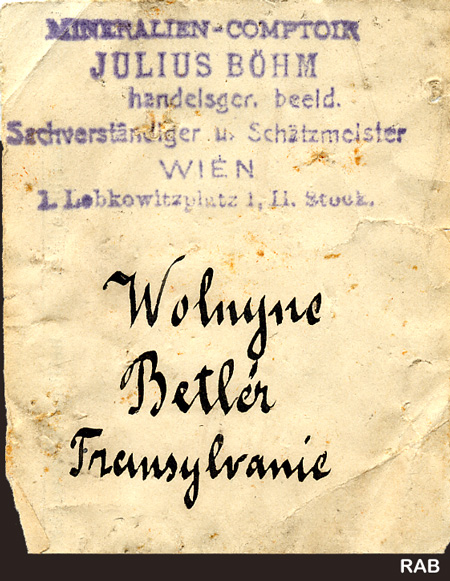 MINERALIEN-COMPTOIR
JULIUS BÖHM
handelsger. beeid.
Sachverständiger u. Schätzmeister
WIEN
I. Lobkowitzplatz 1, II. Stock.
Wolnyne
Betlér
Transylvanie
RAB